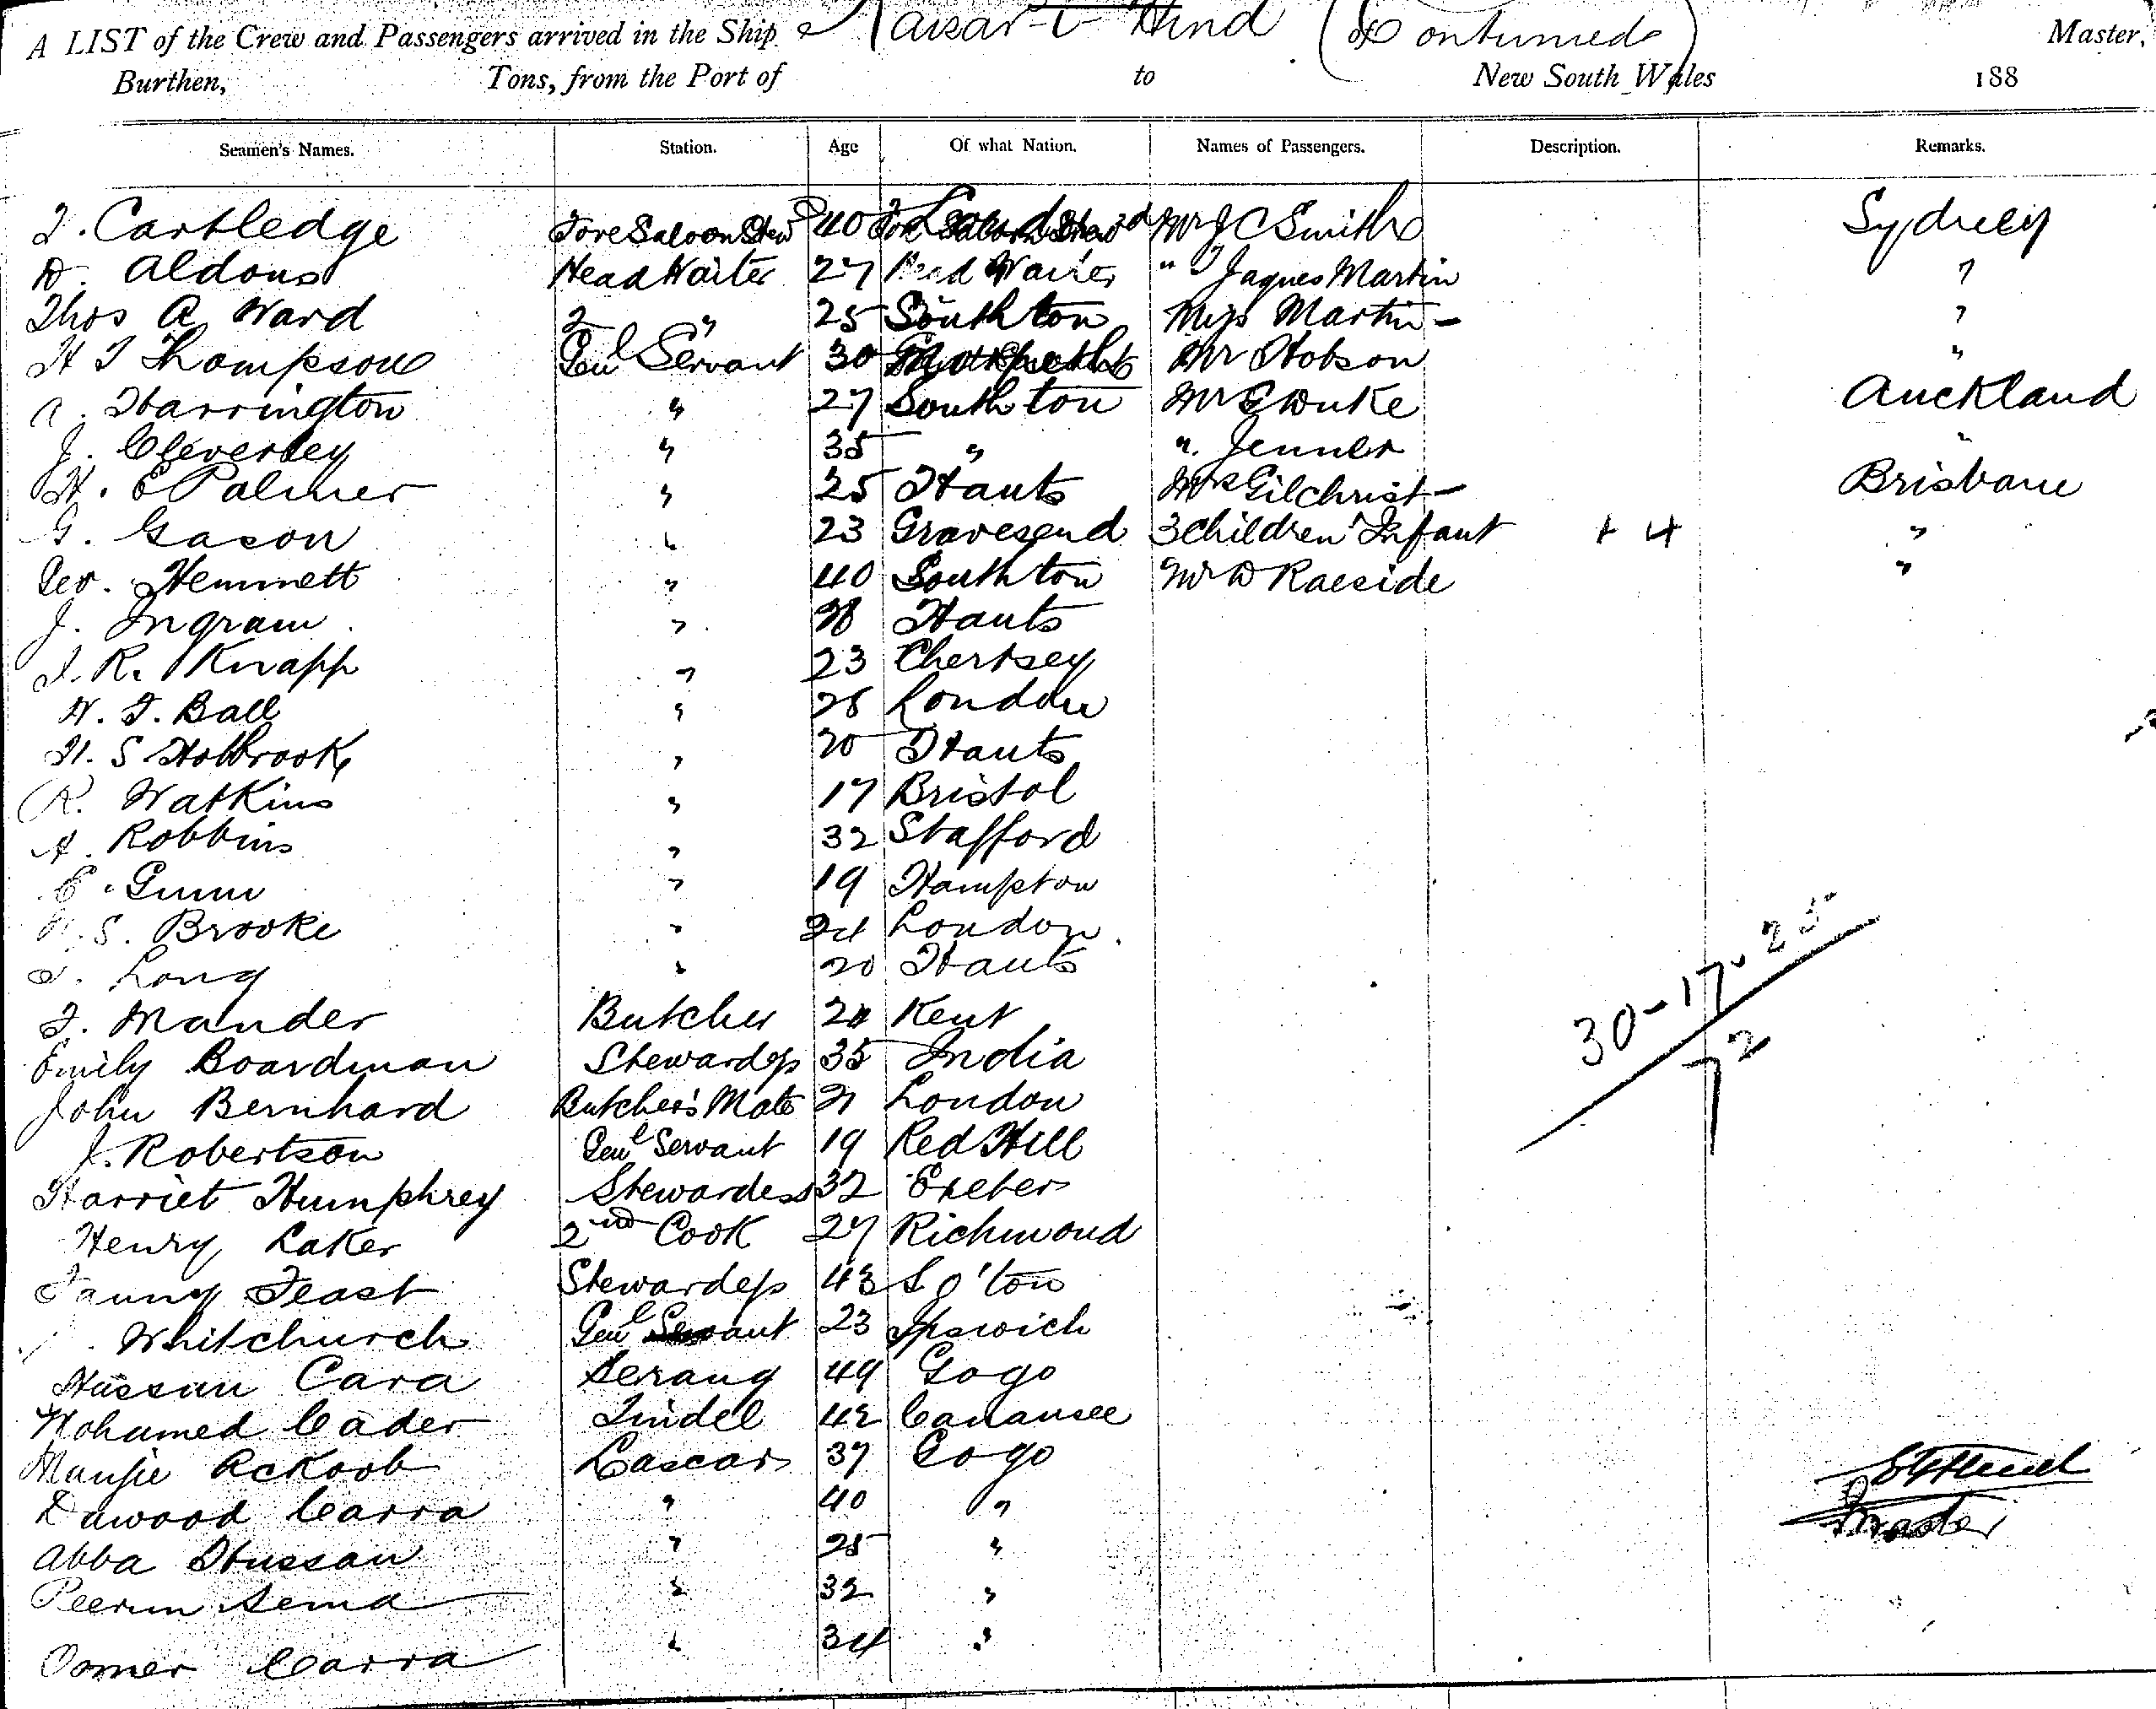 A LIST of the Crew and Passengers arrived in the Ship Kaisar-i-Hind (Continued) Master,
Burthen, Tons, from the Port of to New South Wales 188
Seamen's Names. Station. Age Of what Nation. Names of Passengers. Description. Remarks.
J. Cartledge Fore Saloon Stewd 40 London Mr J C Smith Sydney
D. Aldous Head Waiter 27 Head Waiter " Jaques Martin "
Thos A Ward 2 " 25 Southton Miss Martin - "
H J Thompson Genl Servant 30 Mr Hobson "
A. Harrington " 27 Southton Mr G Duke Auckland
J. Cleverley " 35 " " Jenner "
H. E Palmer " 25 Hants Mrs Gilchrist - Brisbane
G. Gason " 23 Gravesend 3 Children Infant + 4 "
Geo. Hemmett " 40 Southton Mr D Raeside "
J. Ingram " 28 Hants
J. R. Knapp " 23 Chertsey
W. J. Ball " 28 London
H. S Holbrook " 20 Hants
R. Watkins " 17 Bristol
A. Robbins " 32 Stafford
E. Gunn " 19 Hampton
S. Brooke " 24 London
Long " 20 Hants
J. Mander Butcher 24 Kent
Emily Boardman Stewardess 35 India
John Bernhard Butcher's Mate 21 London
J. Robertson Genl Servant 19 Red Hill
Harriet Humphrey Stewardess 32 Exeter
Henry Laker 2nd Cook 27 Richmond
Fanny Feast Stewardess 43 So'ton
Whitchurch Genl Servant 23 Ipswich
Hassan Cara Serang 49 Gogo
Mohamed Cader Tindel 42 Canansee
Manjie Ackoob Lascar 37 Gogo
Dawood Carra " 40 "
Abba Hussan " 25 "
Peerun Sema " 32 "
Oomer Carra " 34 "
30-17-25
72
Master